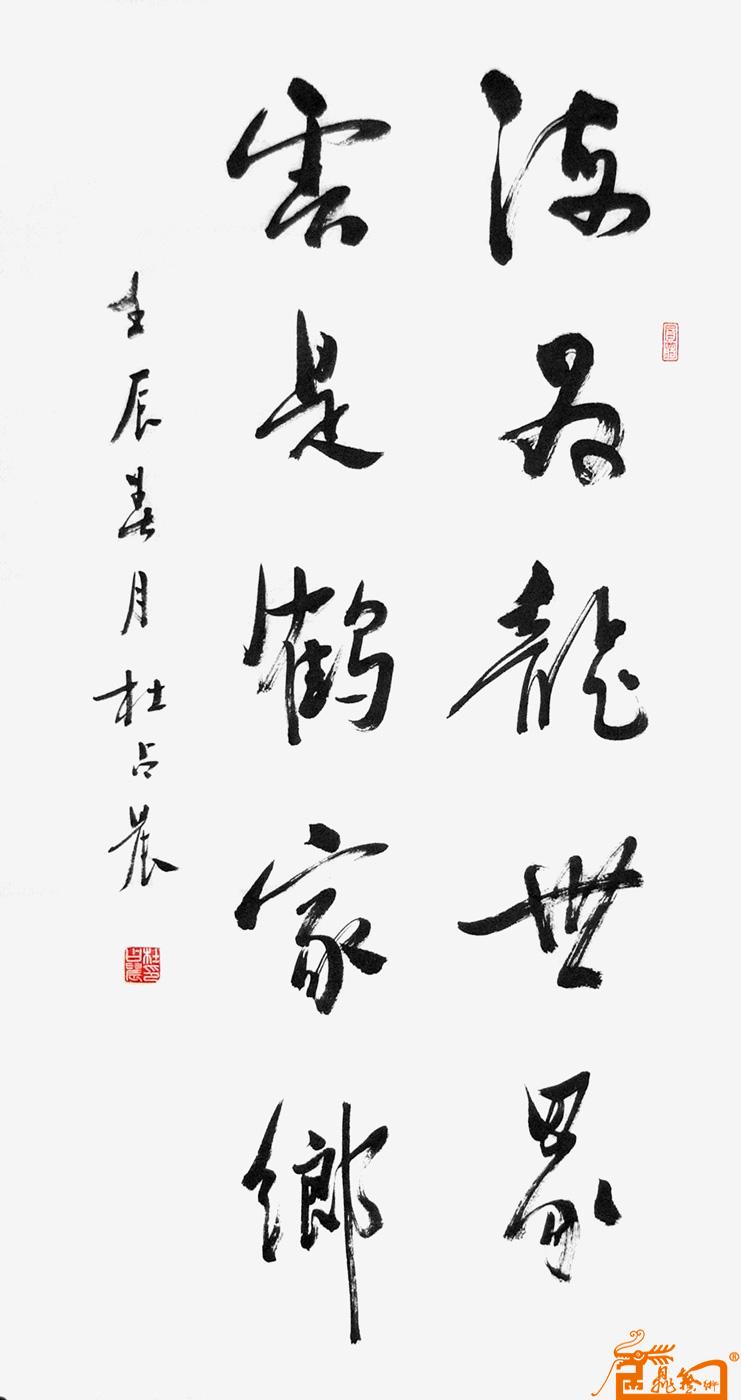 海為龍世界
雲是鶴家鄉
壬辰春月杜占晨